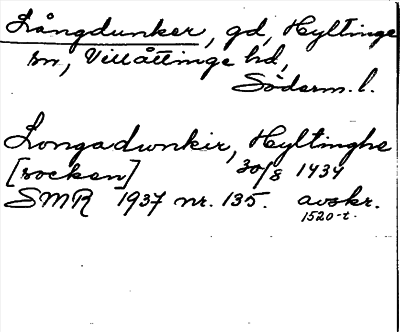 Långdunker, gd, Hyltinge
sn, Villåttinge hd,
Söderm. l.
Longadwnkir, Hyltinghe
[socken] 30/8 1434
SMR 1937 nr. 135. avskr.
1520-t.